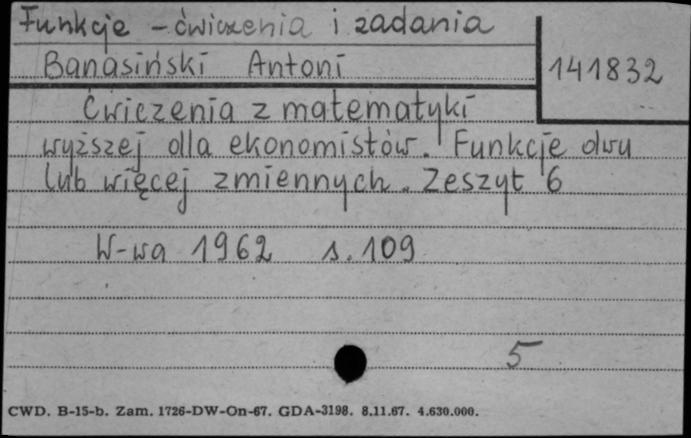 Funkcje - ćwiczenia i zadania
Banasiński Antoni
141832
Ćwiczenia z matematyki
wyższej dla ekonomistów. Funkcje dwu
lub więcej zmiennych. Zeszyt 6
W-wa 1962 s. 109
5
CWD. B-15-b. Zam. 1726-DW-On-67. GDA-3198. 8.11.67. 4.630.000.